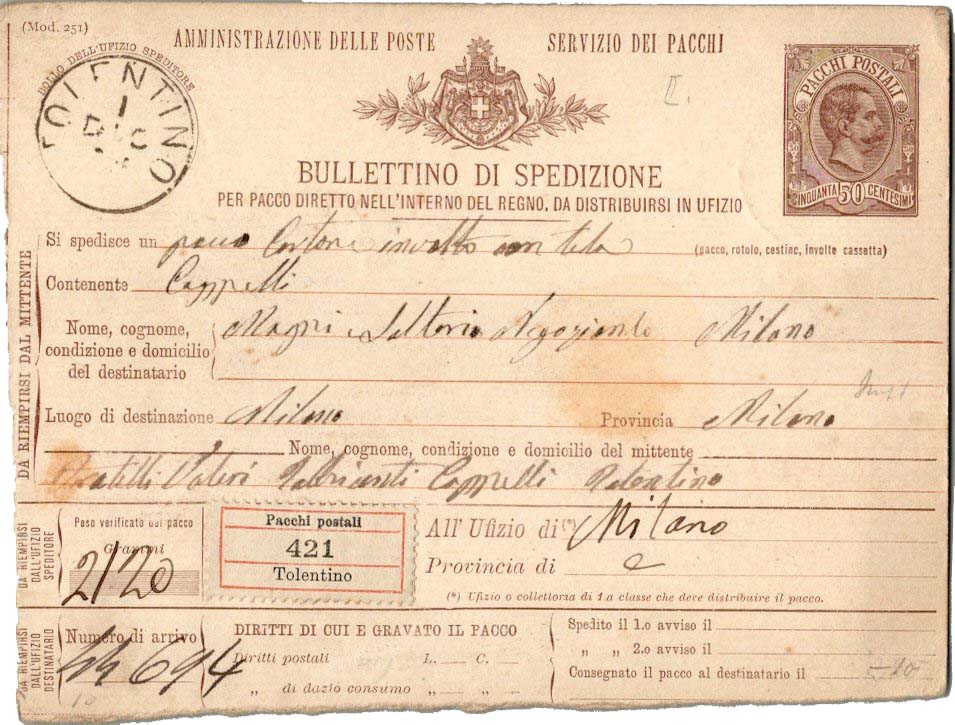 (Mod. 251)
AMMINISTRAZIONE DELLE POSTE SERVIZIO DEI PACCHI
BOLLO DELL'UFIZIO SPEDITORE
TOLENTINO
1
DIC
PACCHI POSTALI
CINQUANTA 50 CENTESIMI
BULLETTINO DI SPEDIZIONE
PER PACCO DIRETTO NELL'INTERNO DEL REGNO, DA DISTRIBUIRSI IN UFIZIO
DA RIEMPIRSI DAL MITTENTE
Si spedisce un pacco Cartone involto con tela (pacco, rotolo, cestino, involte cassetta)
Contenente Cappelli
Nome, cognome,
condizione e domicilio
del destinatario
Negoziante Milano
Luogo di destinazione Milano Provincia Milano
Nome, cognome, condizione e domicilio del mittente
Fratelli Valeri Fabbricanti Cappelli Tolentino
DA RIEMPIRSI
DALL'UFIZIO
SPEDITORE
Peso verificato del pacco
Grammi
2120
Pacchi postali
421
Tolentino
All' Ufizio di (*) Milano
Provincia di
(*) Ufizio o collettoria di 1.a classe che deve distribuire il pacco.
DA RIEMPIRSI
DALL'UFIZIO
DESTINATARIO
Numero di arrivo
694
DIRITTI DI CUI E GRAVATO IL PACCO
Diritti postali L. C.
„ di dazio consumo „ „
Spedito il 1.o avviso il
„ „ 2.o avviso il
Consegnato il pacco al destinatario il